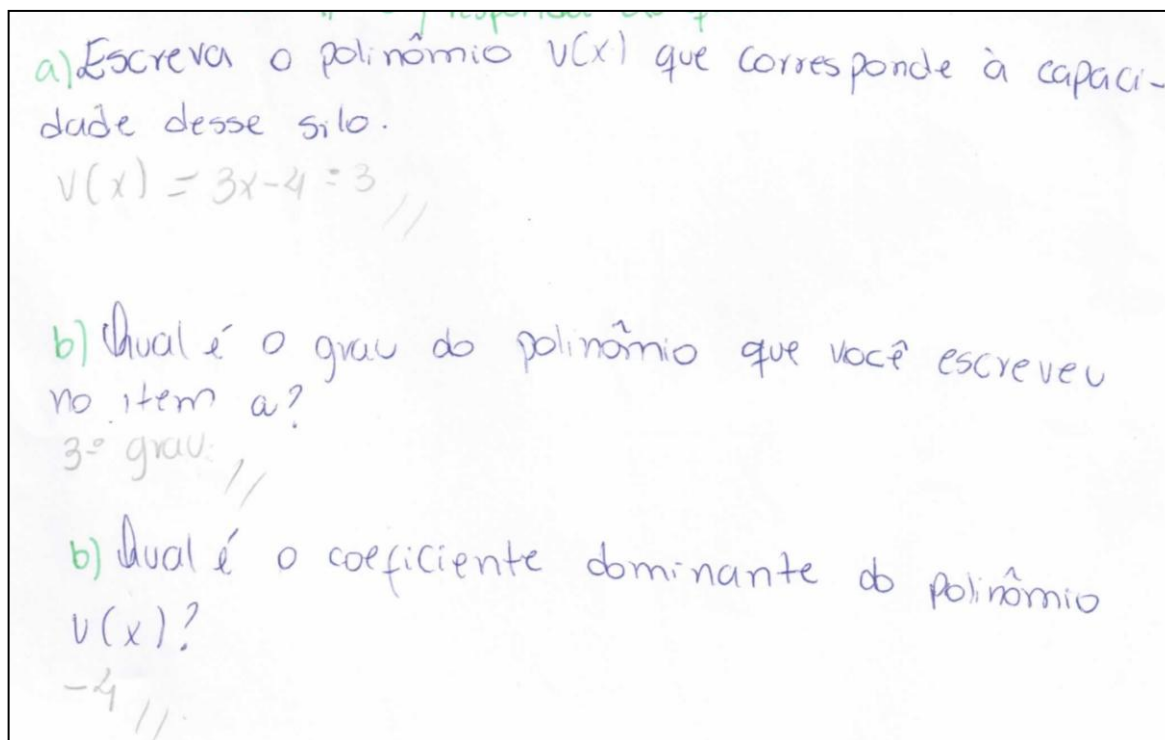 a) Escreva o polinômio V(x) que corresponde à capaci-
dade desse silo.
V(x) = 3x-4 = 3 //
b) Qual é o grau do polinômio que você escreveu
no item a?
3º grau. //
b) Qual é o coeficiente dominante do polinômio
V(x)?
-4 //